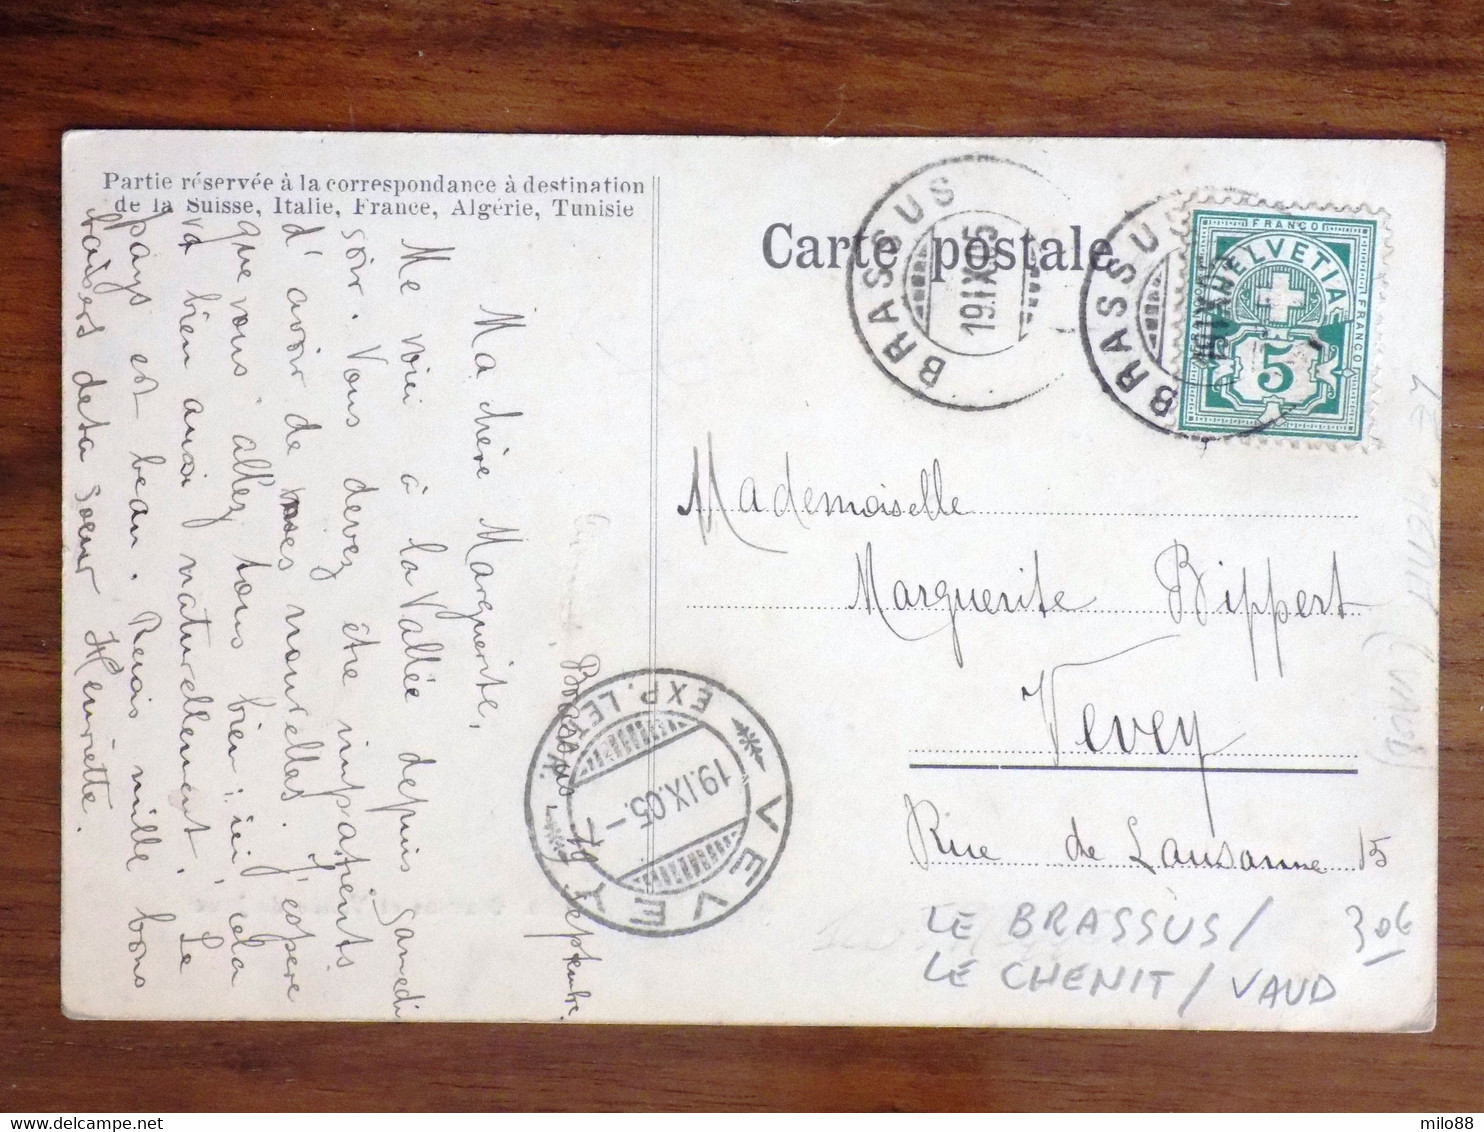 Partie réservée à la correspondance à destination
de la Suisse, Italie, France, Algérie, Tunisie
Carte postale
BRASSUS
19.IX.05
BRASSUS
FRANCO
HELVETIA
FRANCO
5
Mademoiselle
Marguerite Bippert
Vevey
Rue de Lausanne 15
LE BRASSUS/
LE CHENIT/VAUD
30€
LE CHENIT (VAUD)
VEVEY
EXP. LETTR.
19.IX.05.
Brassus 19 Septembre.
Ma chère Marguerite,
Me voici à la Vallée depuis Samedi
soir. Vous devez être impatients
d'avoir de mes nouvelles. J'espère
que vous allez tous bien; ici cela
va bien aussi naturellement. Le
pays est beau. Reçois mille bons
baisers de ta soeur Henriette.
milo88